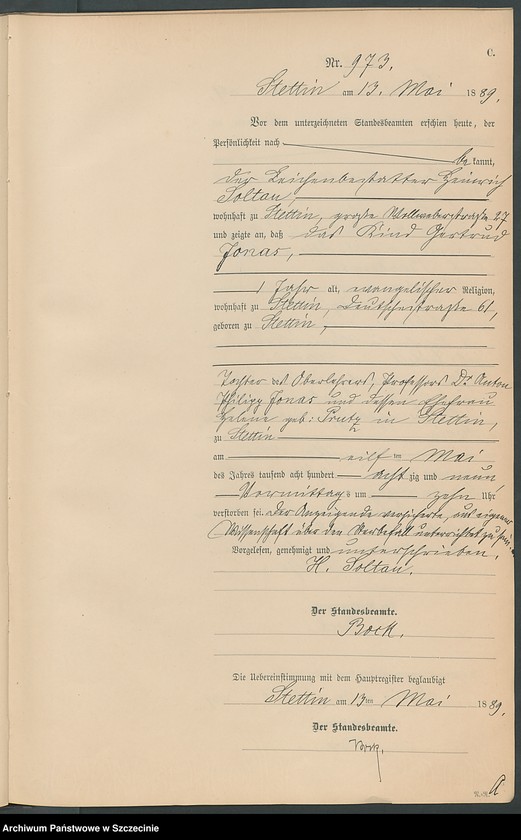 C.
Nr. 973.
Stettin am 13. Mai 1889.
Vor dem unterzeichneten Standesbeamten erschien heute, der
Persönlichkeit nach
bekannt,
der Leichenbestatter Heinrich
Soltau,
wohnhaft zu Stettin, große Wollweberstraße 27
und zeigte an, daß das Kind Gertrud
Jonas,
1 Jahr alt, evangelischer Religion,
wohnhaft zu Stettin, Deutschestraße 61,
geboren zu Stettin,
Tochter des Oberlehrers, Professors Dr. Anton
Philipp Jonas und dessen Ehefrau
Helene geb: Prutz in Stettin,
zu Stettin
am eilften Mai
des Jahres tausend acht hundert achtzig und neun
Vormittags um zehn Uhr
verstorben sei. Der Anzeigende versicherte, aus eigener
Wissenschaft über den Sterbefall unterrichtet zu sein.
Vorgelesen, genehmigt und unterschrieben.
H. Soltau.
Der Standesbeamte.
Bock.
Die Uebereinstimmung mit dem Hauptregister beglaubigt
Stettin am 13ten Mai 1889.
Der Standesbeamte.
Bock.
Archiwum Państwowe w Szczecinie